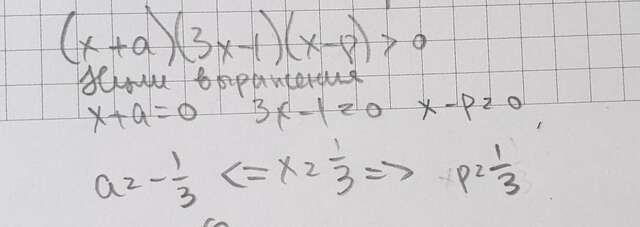 (x+a)(3x-1)(x-p)>0
Нули выражения
x+a=0 3x-1=0 x-p=0,
a=-1/3 <=x=1/3=> p=1/3